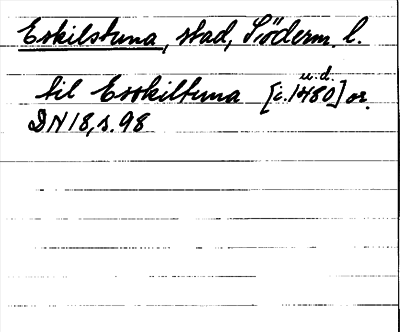 Eskilstuna, stad, Söderm. l.
u.d.
til Esskilstuna [c.1480] or.
DN 18, s. 98